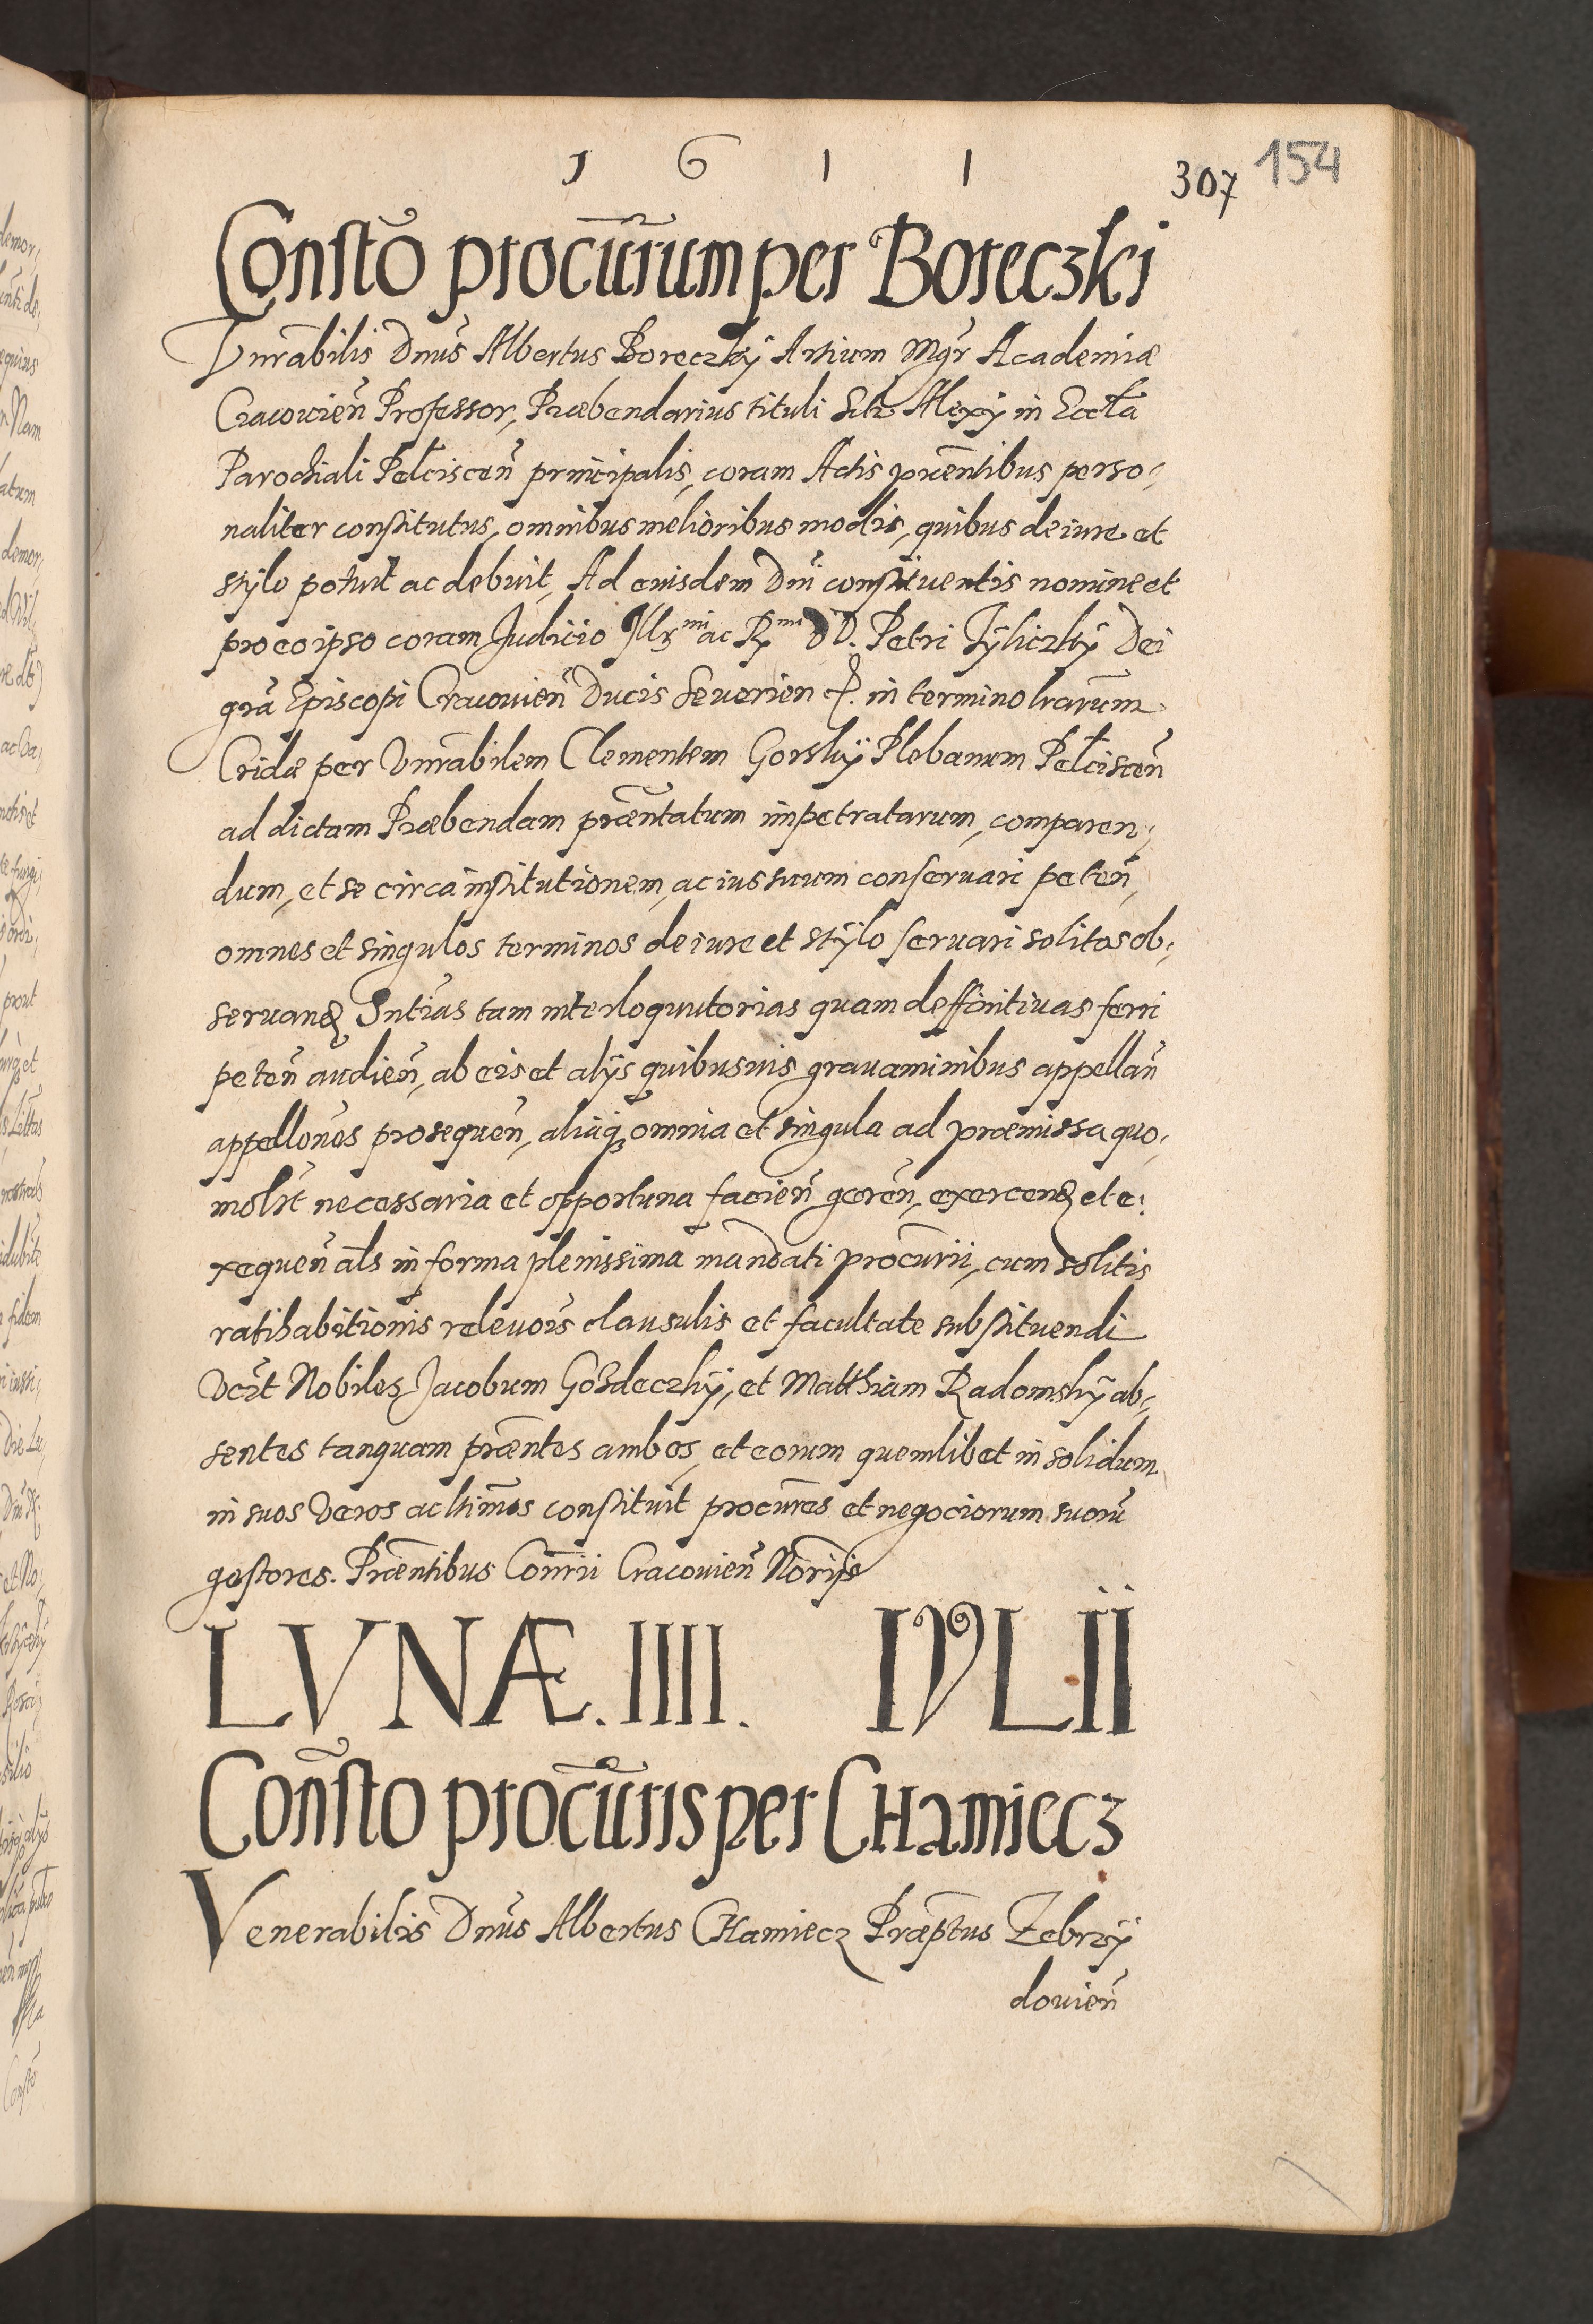 1 6 1 1
307 154
Consto procurum per Boreczki
Vnrabilis Dnus Albertus Boreczky Artium Mgr Academiæ
Cracouien Professor, Præbendarius tituli Scti Alexy in Eccla
Parochiali Pelciscen principalis, coram Actis pntibus perso,
naliter constitutus, omnibus melioribus modis, quibus de iure et
stylo potuit ac debuit, Ad euisdem Dni constituentis nomine et
pro eo ipso coram Judicio Illmi ac Rmi D D. Petri Tyliczky Dei
gra Episcopi Cracouien Ducis Seuerien in termino lrarum
Cridæ per Vnrabilem Clementem Gorsky Plebanum Pelciscen
ad dictam Præbendam præntatum impetratarum, comparen,
dum, et se circa institutionem, ac ius suum conseruari peten,
omnes et singulos terminos de iure et stylo seruari solitos ob,
seruand Sntias tam interloquutorias quam deffinitiuas ferri
peten audien, ab eis et alys quibusuis grauaminibus appellan
appellones prosequen, aliaq omnia et singula ad præmissa quo,
molit necessaria et opportuna facien geren, exercend et e,
xequen als in forma plenissima mandati procurii, cum solitis
ratihabitionis releuois clausulis et facultate substituendi
Vczt Nobiles Jacobum Gozdeczky, et Matthiam Radomsky ab,
sentes tanquam præntes ambos, et eorum quemlibet in solidum
in suos veros ac ltimos constituit procures et negociorum suoru
gestores. Præntibus Conrii Cracouien Norijs
LVNÆ. IIII. IVLII
Consto procuris per CHamiecz
Venerabilis Dnus Albertus CHamiecz Præptus Zebrzy
douien